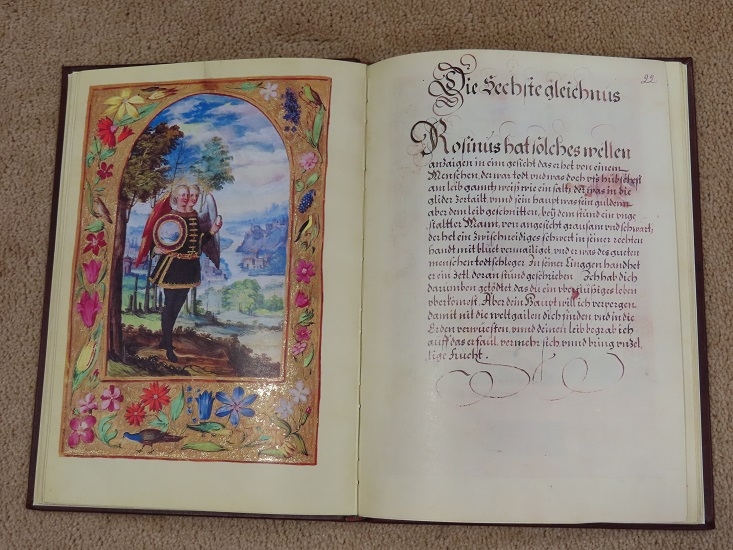 22
Die Sechste gleichnus
Rosinus hat solches wellen
anzaigen in einn gesicht das er het von einem
Menschen, der was todt vnd was doch vffs hübschest
am leib ganntz weis wie ein saltz der was in die
glider zertailt, vnnd sein haupt was fein gulden
aber dem leib geschnitten, bey dem stund ein vnge
staltter Mann, von angesicht grausam vnd schwartz
der het ein zwischneidiges schwert in seiner rechten
handt mit bluet vermailiget vnd er was des gueten
menschen todtschleger. In seiner Linggen handt het
er ein Zetl. doran stund geschriben. Ich hab dich
darumben getödtet das du ein vberflüssiges leben
vberkomest. Aber dein haupt will ich verpergen
damit nit die welt gailen dich finden vnd in die
Erden verwüsten, vnnd deinen leib begrab ich
auff das er faul, vermehr sich vnnd bring vnzel
lige frucht.